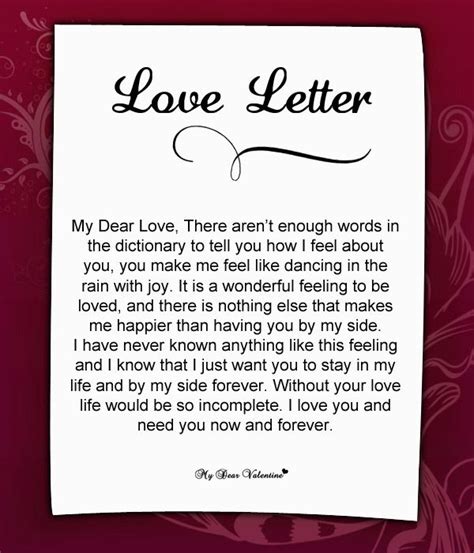 Love Letter
My Dear Love, There aren’t enough words in
the dictionary to tell you how I feel about
you, you make me feel like dancing in the
rain with joy. It is a wonderful feeling to be
loved, and there is nothing else that makes
me happier than having you by my side.
I have never known anything like this feeling
and I know that I just want you to stay in my
life and by my side forever. Without your love
life would be so incomplete. I love you and
need you now and forever.
My Dear Valentine